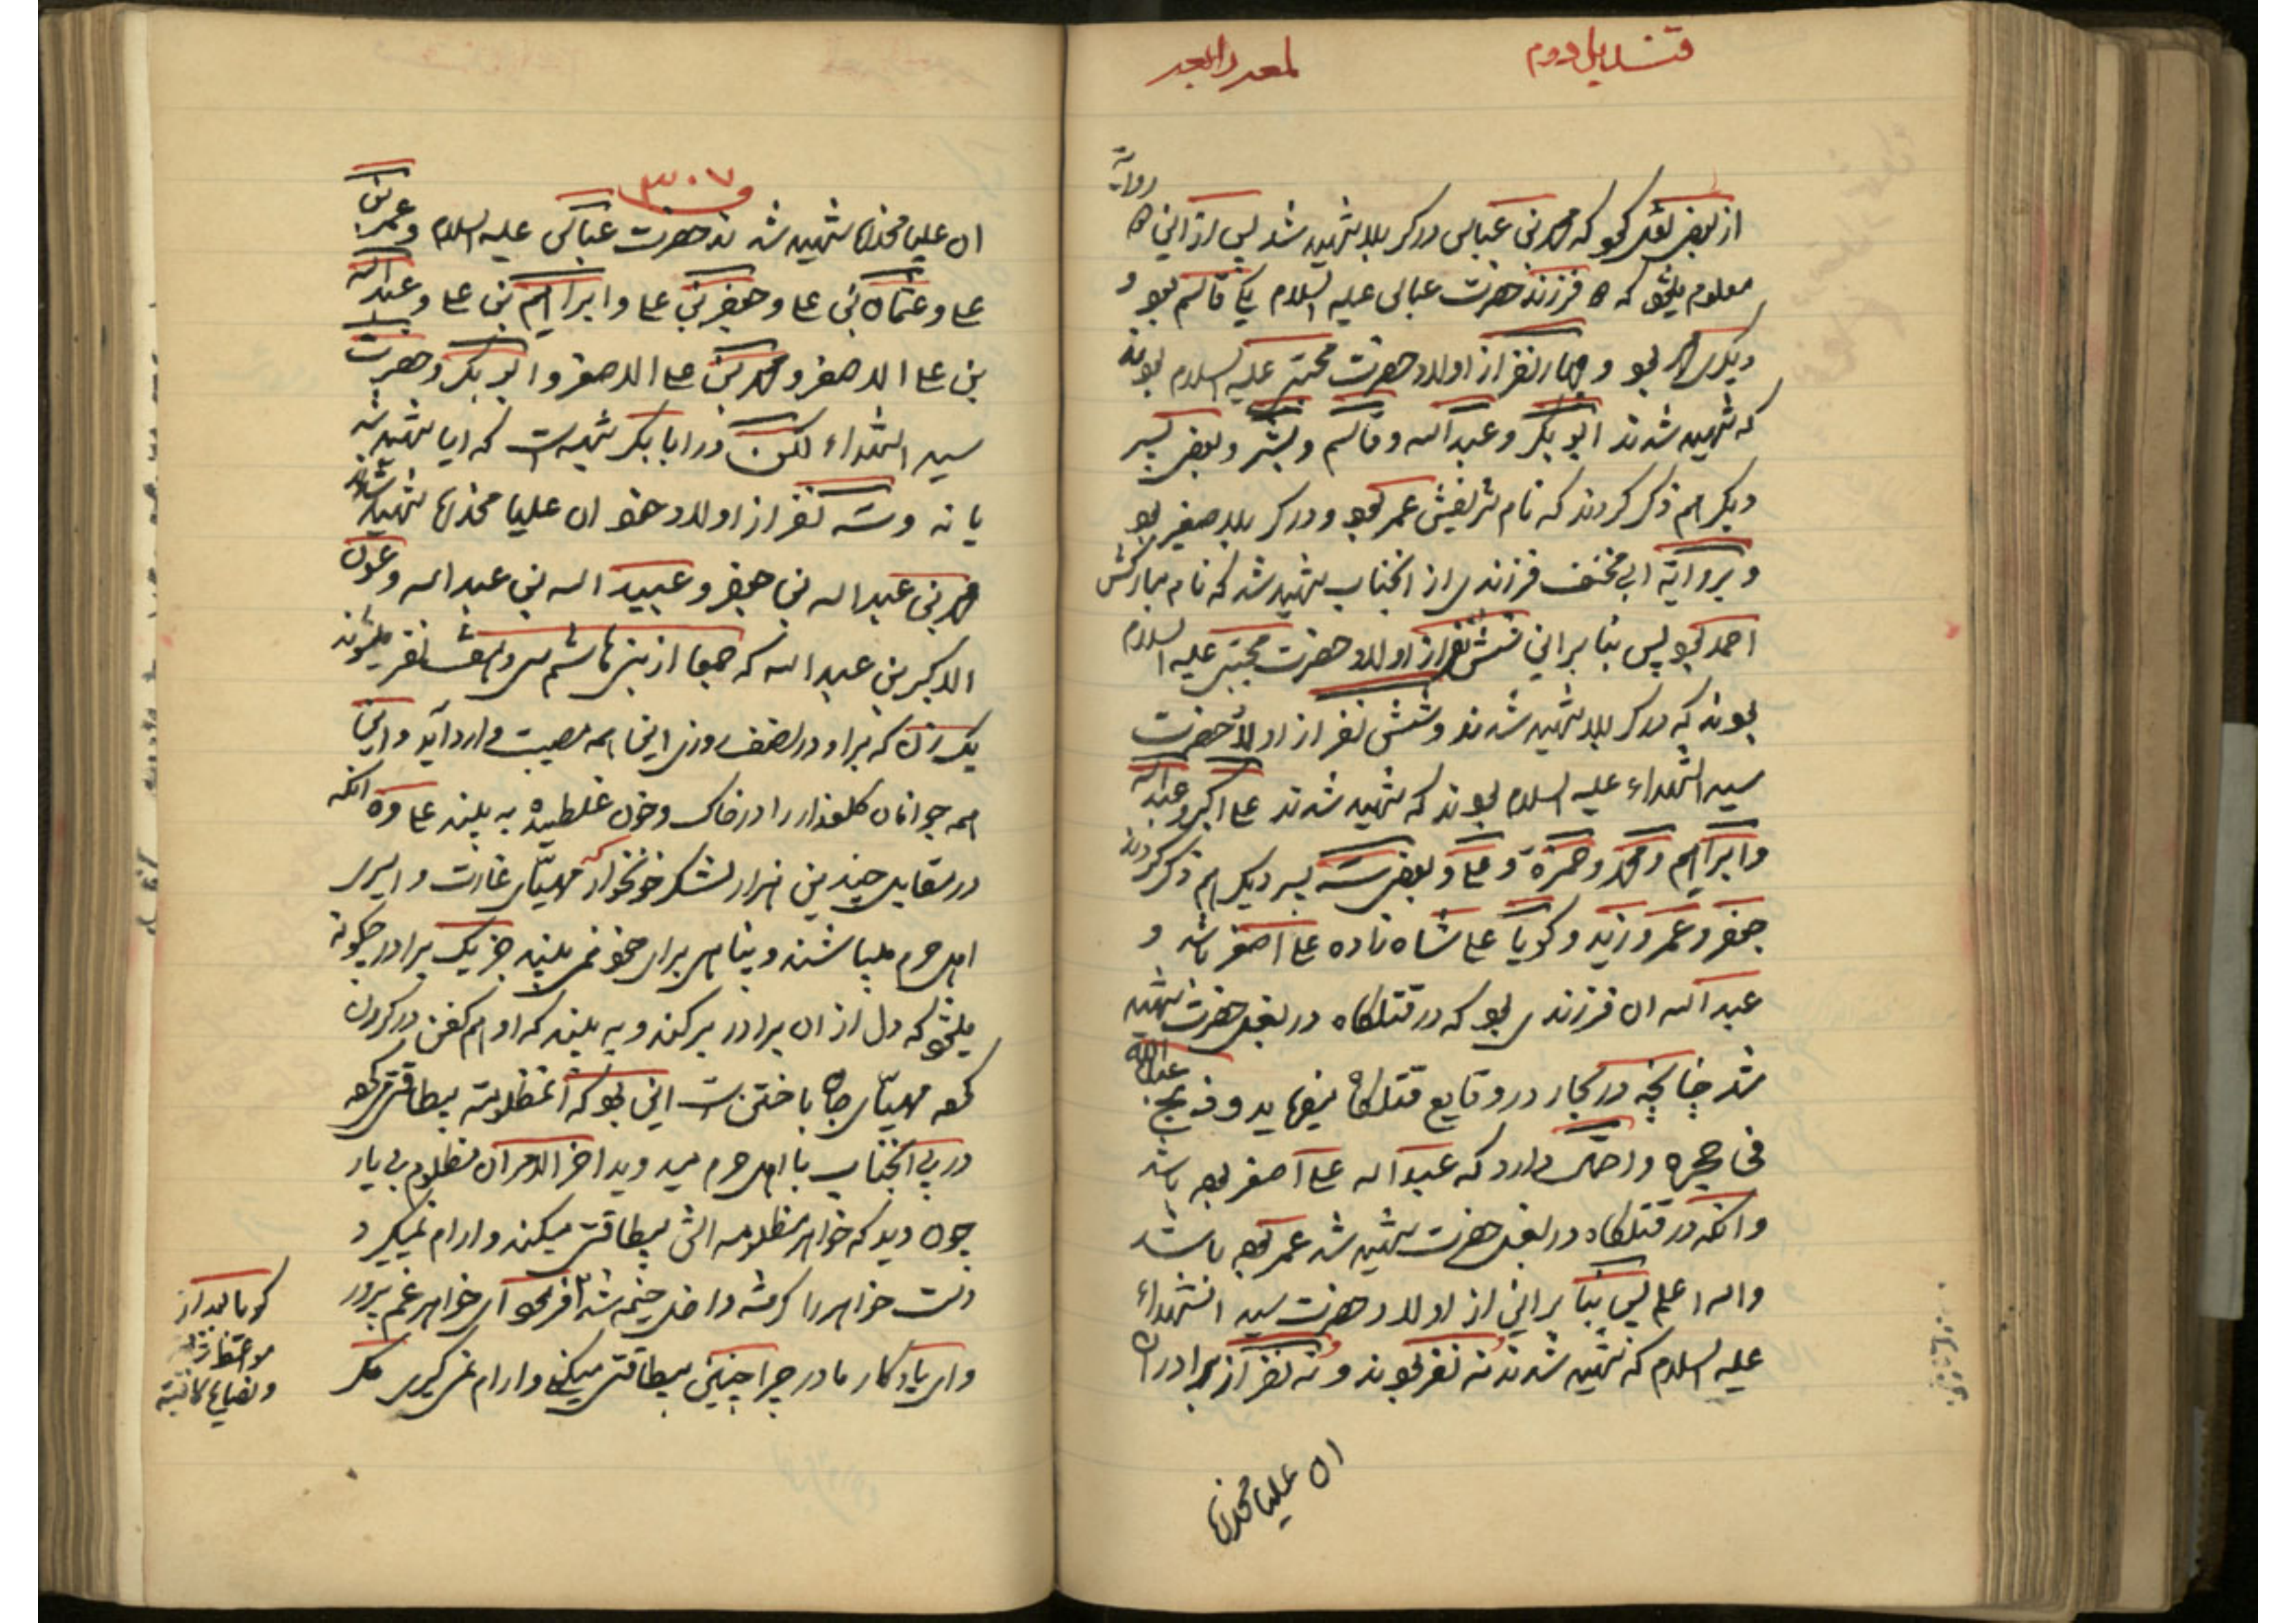 قندیل دوم
روایة
از بعض نقل نمود که محمد بن عباس در کربلا شهید شد پس از این
معلوم میشود که فرزند حضرت عباس علیه السلام یکی قاسم بود و
دیگری بود و چهار نفر از اولاد حضرت مجتبی علیه السلام بودند
که شهید شدند ابو بکر و عبد الله و قاسم و بشر و بعض پسر
دیگر هم ذکر کردند که نام شریفش عمر بود و در کربلا صغیر بود
و بروایة ابی مخنف فرزندی از انجناب شهید شد که نام مبارکش
احمد بود پس بنا براین شش نفر از اولاد حضرت مجتبی علیه السلام
بودند که در کربلا شهید شدند و شش نفر از اولاد حضرت
سید الشهداء علیه السلام بودند که شهید شدند علی اکبر و عبد الله
و ابراهیم و محمد و حمزة و علی و بعض سه پسر دیگر هم ذکر کردند
جعفر و عمر و زید و گویا علی شاه زاده علی اصغر باشد و
عبد الله ان فرزندی بود که در قتلگاه در بغل حضرت شهید
شد چنانچه در بحار در وقایع قتلگاه میفرماید و ذبح عبد الله
فی حجره و احتمال دارد که عبد الله علی اصغر بوده باشد
و انکه در قتلگاه در بغل حضرت شهید شد عمر بوده باشد
و الله اعلم پس بنا براین از اولاد حضرت سید الشهداء
علیه السلام که شهید شدند نه نفر بودند و نه نفر از برادران
ان علیا مخدره
۳۰۷
ان علیا مخدره شهید شدند حضرت عباس علیه السلام و عمر بن
علی و عثمان بن علی و جعفر بن علی و ابراهیم بن علی و عبد الله
بن علی الاصغر و محمد بن علی الاصغر و ابو بکر و حضرت
سید الشهداء لکن در ابا بکر شبهه است که ایا شهید شد
یا نه و سه نفر از اولاد خود ان علیا مخدره شهید شدند
محمد بن عبد الله بن جعفر و عبید الله بن عبد الله و عون
الاکبر بن عبد الله که جمعا از بنی هاشم سی و هفت نفر میشوند
یک زن که براو در نصف روز اینهمه مصیبت وارد آید و این
همه جوانان گلعذار را در خاک و خون غلطیده به بیند علاوه انکه
در مقابل چندین هزار لشکر خونخوار که مهیای غارت و اسیری
اهل حرم میباشند و پناهی برای خود نمی بیند جز یک برادر چگونه
میشود که دل از ان برادر برکند و به بیند که او هم کفن در گردن
کرده مهیای جان باختن است این بود که انمظلومه بیطاقتی کرده
در پی انجناب با اهل حرم میدوید اخر الامر ان مظلوم بی یار
چون دید که خواهر مظلومه اش بیطاقتی میکند و ارام نمیگیرد
دست خواهر را گرفته داخل خیمه شد فرمود ای خواهر غم پرور
و ای یادگار مادر چرا چنین بیطاقتی میکنی و ارام نمی گیری مگر
گویا بعد از